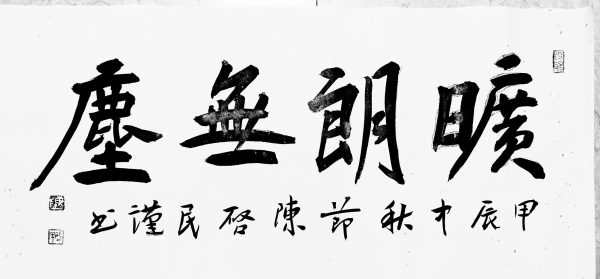 曠朗無塵
甲辰中秋節陳啓民謹书